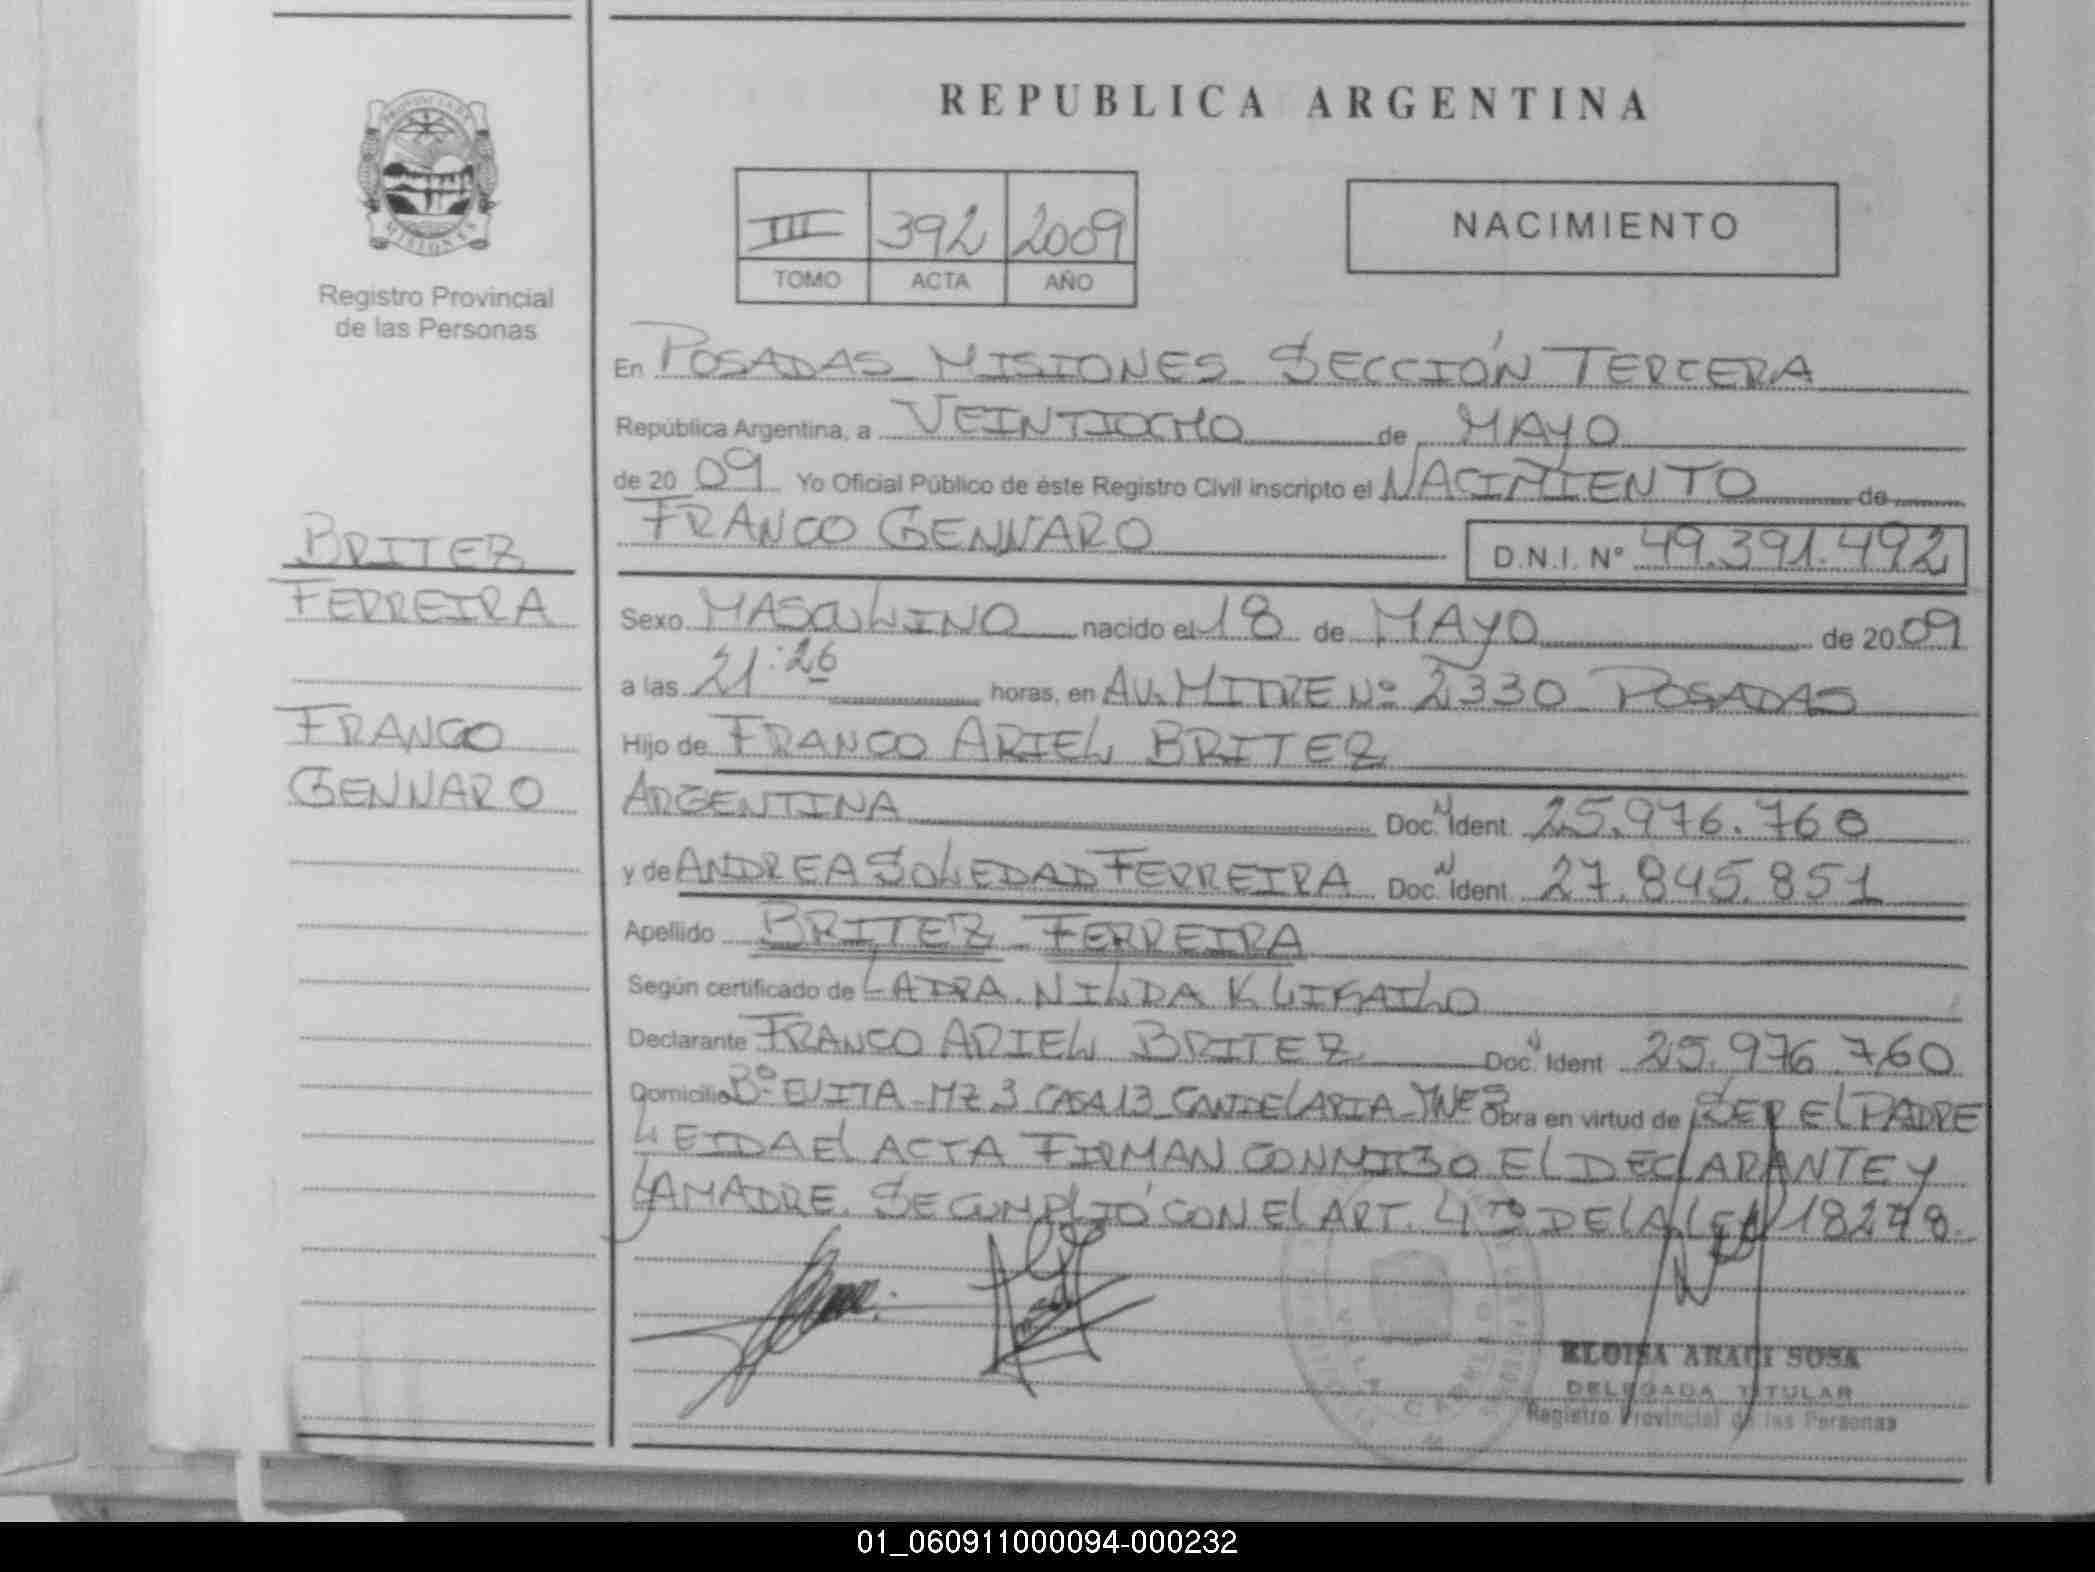 REPUBLICA ARGENTINA
PROVINCIA DE
MISIONES
Registro Provincial
de las Personas
III 392 2009
TOMO ACTA AÑO
NACIMIENTO
En POSADAS MISIONES SECCIÓN TERCERA
República Argentina, a VEINTIOCHO de MAYO
de 20 09 Yo Oficial Público de éste Registro Civil inscripto el NACIMIENTO de
FRANCO GENNARO D.N.I. Nº 49.391.492
BRITEZ
FERREIRA
FRANCO
GENNARO
Sexo MASCULINO nacido el 18 de MAYO de 20 09
a las 21:26 horas, en AV. MITRE Nº 2330 POSADAS
Hijo de FRANCO ARIEL BRITEZ
ARGENTINA Doc. Ident. 25.976.760
y de ANDREA SOLEDAD FERREIRA Doc. Ident. 27.845.851
Apellido BRITEZ FERREIRA
Según certificado de NILDA
Declarante FRANCO ARIEL BRITEZ Doc. Ident. 25.976.760
Domicilio Bº EVITA - MZ 3 CASA 13 CANDELARIA - MNES Obra en virtud de SER EL PADRE
LEIDA El ACTA FIRMAN CONMIGO EL DECLARANTE Y
LA MADRE. SE CUMPLIÓ CON El ART. 4to DE LA LEY 18248.
ELOISA ARAGI SOSA
DELEGADA TITULAR
Registro Provincial de las Personas
01_060911000094-000232